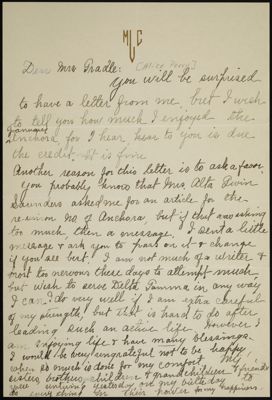 MLC
Dear Mrs Pradle: [Alice Perry]
You will be surprised
to have a letter from me, but I wish
to tell you how much I enjoyed the
January
Anchora for I hear hear to you is due
the credit. It is fine
Another reason for this letter is to ask a favor.
You probably know that Mrs Alta Irwin
Saunders asked me for an article for the
reunion no of Anchora, but if that was asking
too much, then a message, I sent a little
message & ask you to pass on it & change
if you see best. I am not much of a writer &
most too nervous these days to attempt much
but wish to serve Delta Gamma in any way
I can. I do very well if I am extra careful
of my strength, but that is hard to do after
leading such an active life. However I
am enjoying life & have many blessings.
I would be very ungrateful not to be happy
when so much is done for my comfort. My
sisters, brothers, children & grandchildren & friends
were untiring yesterday on my birthday to
do everything in their power for my happiness.